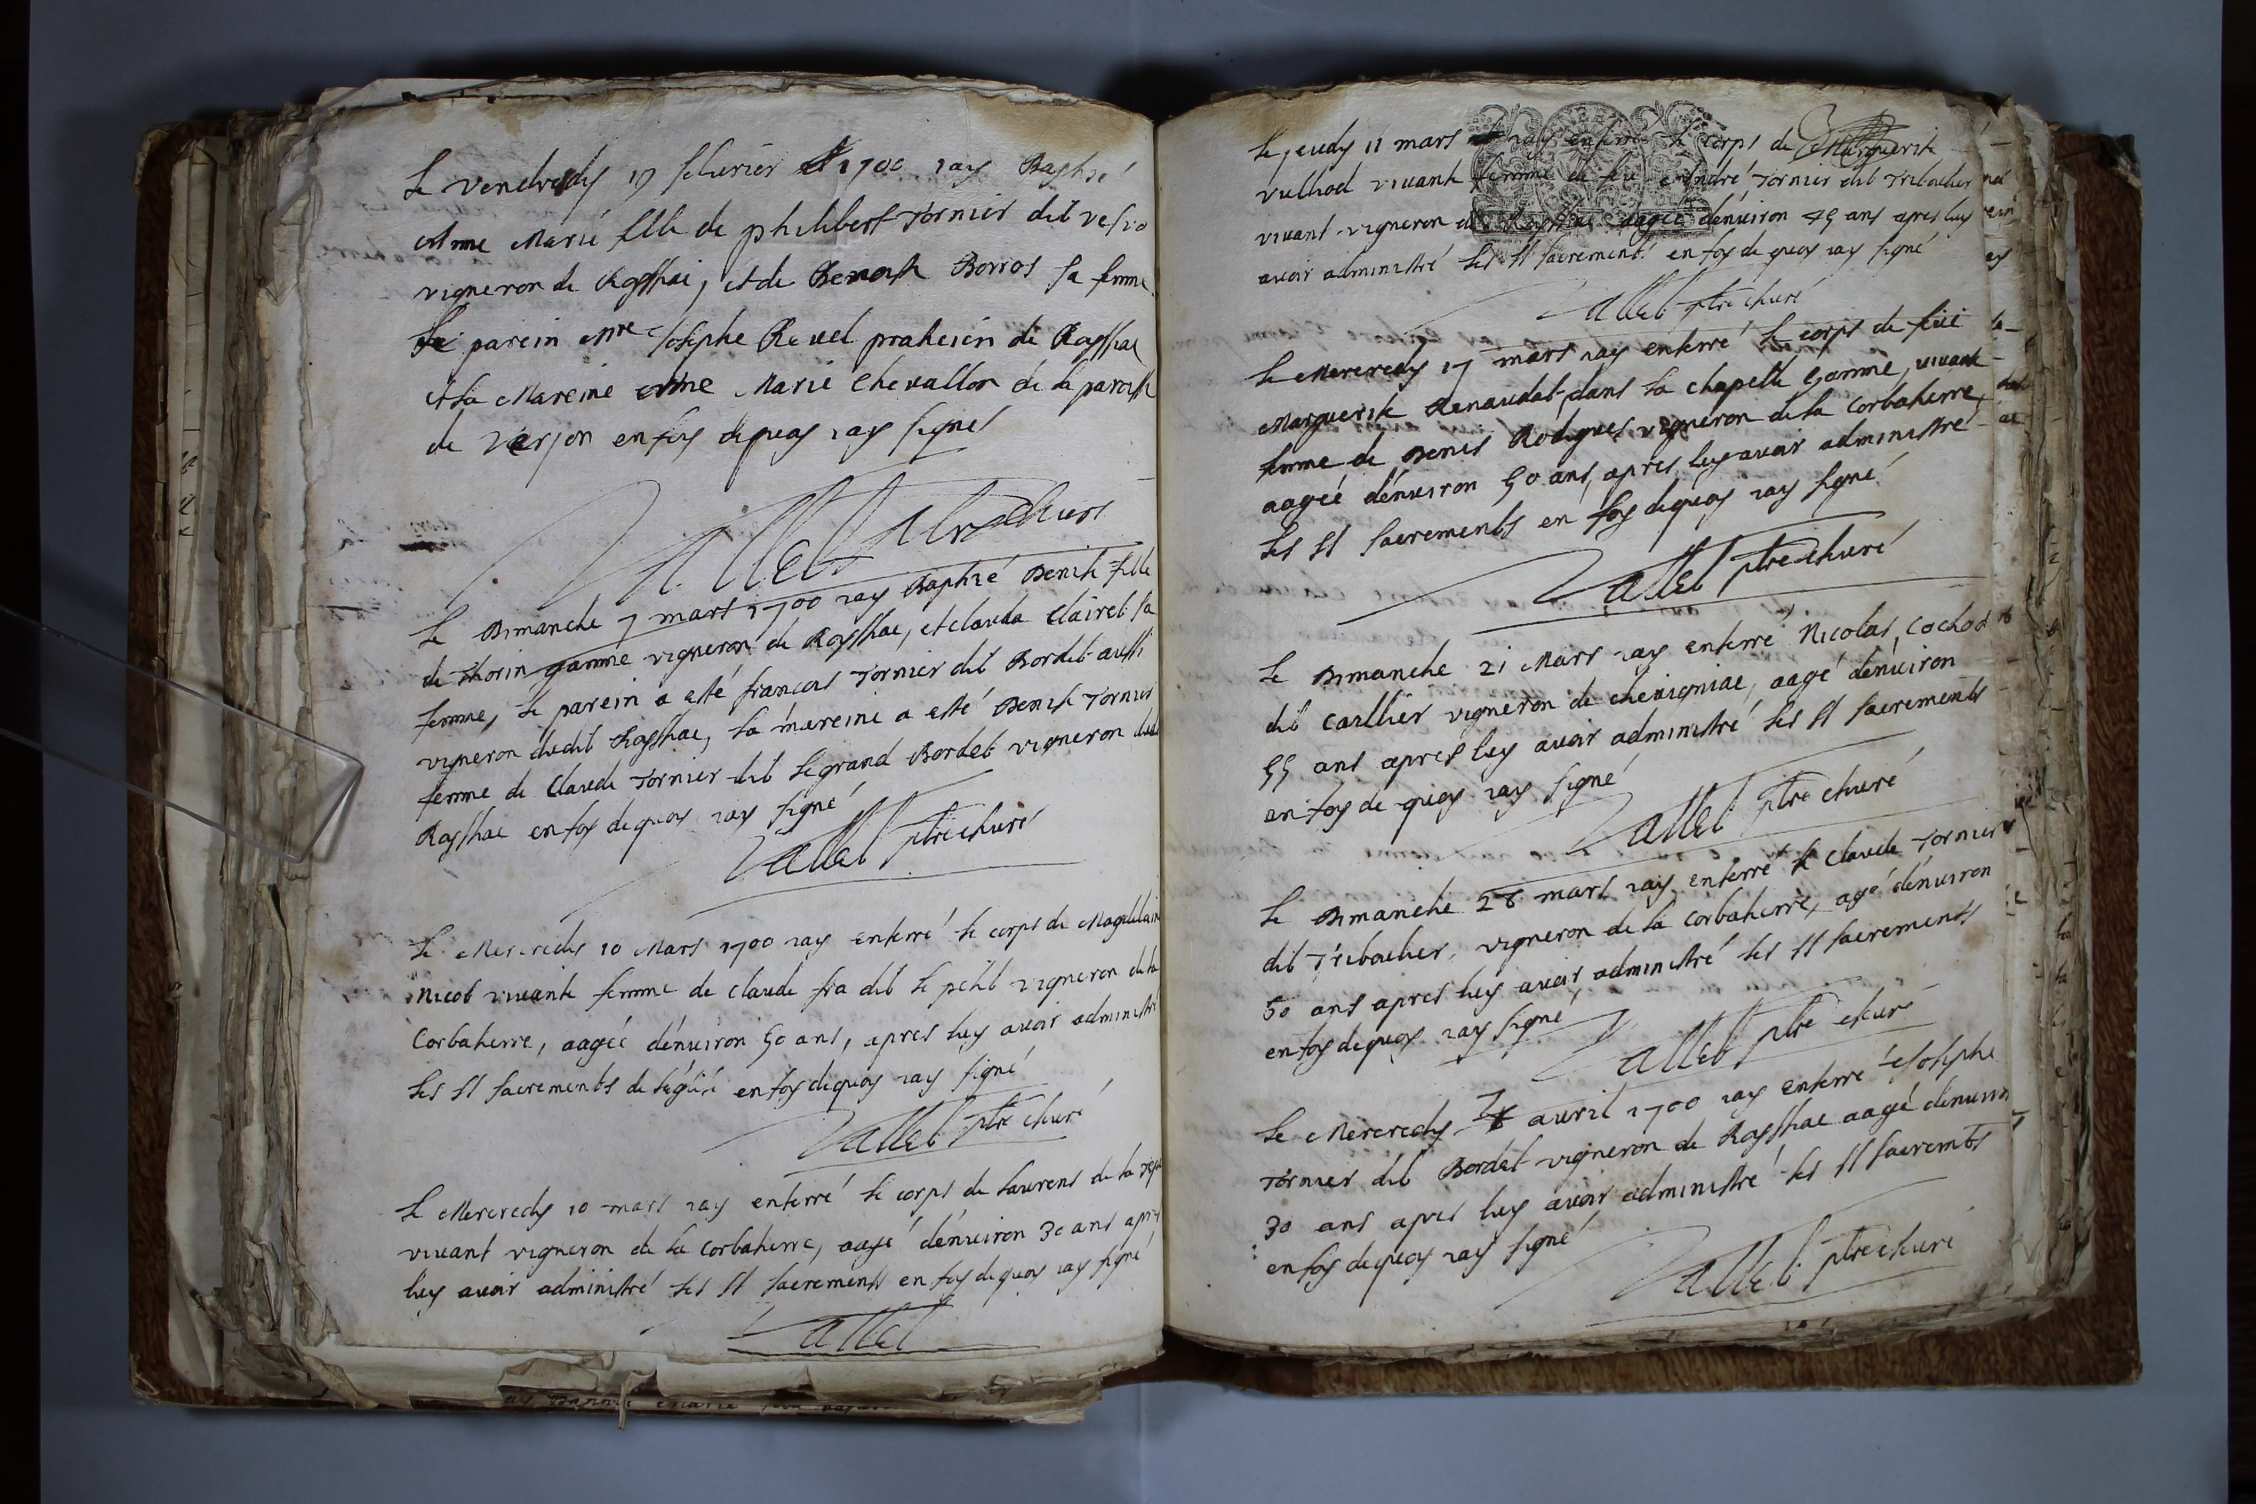 Le vendredy 17 feburier 1700 iay Baptisé
Anne Marie fille de philibert Tornier dit
vigneron de Roissiat, et de Benoite Borron sa femme
Le parein Mre Josephe Revel praticien de Roissiat
et la Mareine Anne Marie Chevallon de la paroisse
de Verjon en foy de quoy iay signes
Vallet curé
Le Dimanche 7 mars 1700 iay Baptisé Denise fille
de Thorin gamme vigneron de Roissiat, et clauda Clairet sa
femme, le parein a esté francois Tornier dit Bordet aussi
vigneron dudit Roissiat, la mareine a esté Denise Tornier
femme de Claude Tornier dit le grand Bordet vigneron dudit
Roissiat en foy de quoy iay signé
Vallet ptre churé
Le Mercredy 10 Mars 1700 iay enterré le corps de Magdelaine
Nicot vivante femme de claude fra dit le petit vigneron de la
Corbatierre, aagée d'environ 50 ans, apres luy avoir administré
les SS sacrements de l'église en foy de quoy iay signé
Vallet ptre churé
Le Mercredy 10 mars iay enterré le corps de Laurens de la
vivant vigneron de la Corbatierre, aagé d'environ 30 ans apres
luy avoir administré les SS sacrements en foy de quoy iay signé
Vallet
Le jeudy 11 mars iay enterré le corps de Marguerite
vulliod vivante femme de feu André Tornier dit Tribacher
vivant vigneron de Roissiat aagée d'environ 45 ans apres luy
avoir administré les SS sacrements en foy de quoy iay signé
Vallet ptre churé
Le Mercredy 17 mars iay enterré le corps de feüe
Marguerite Renaudat, dans la chapelle gamme, vivante
femme de Denis Rodigues vigneron de la Corbatierre,
aagée d'environ 50 ans, apres luy avoir administré
les SS sacrements en foy de quoy iay signé
Vallet ptre churé
Le Dimanche 21 Mars iay enterré Nicolas Cochod
dit Caillier vigneron de chevigniat, aagé d'environ
55 ans apres luy avoir administré les SS sacrements
en foy de quoy iay signé
Vallet ptre churé
Le Dimanche 28 mars iay enterré Claude Tornier
dit Tribacher, vigneron de la Corbatierre, agé d'environ
50 ans apres luy avoir administré les SS sacrements
en foy de quoy iay signé
Vallet ptre churé
Le Mercredy 7 avril 1700 iay enterré Josephe
Tornier dit Bordet vigneron de Roissiat aagé d'environ
30 ans apres luy avoir administré les SS sacremts
en foy de quoy iay signé
Vallet ptre churé